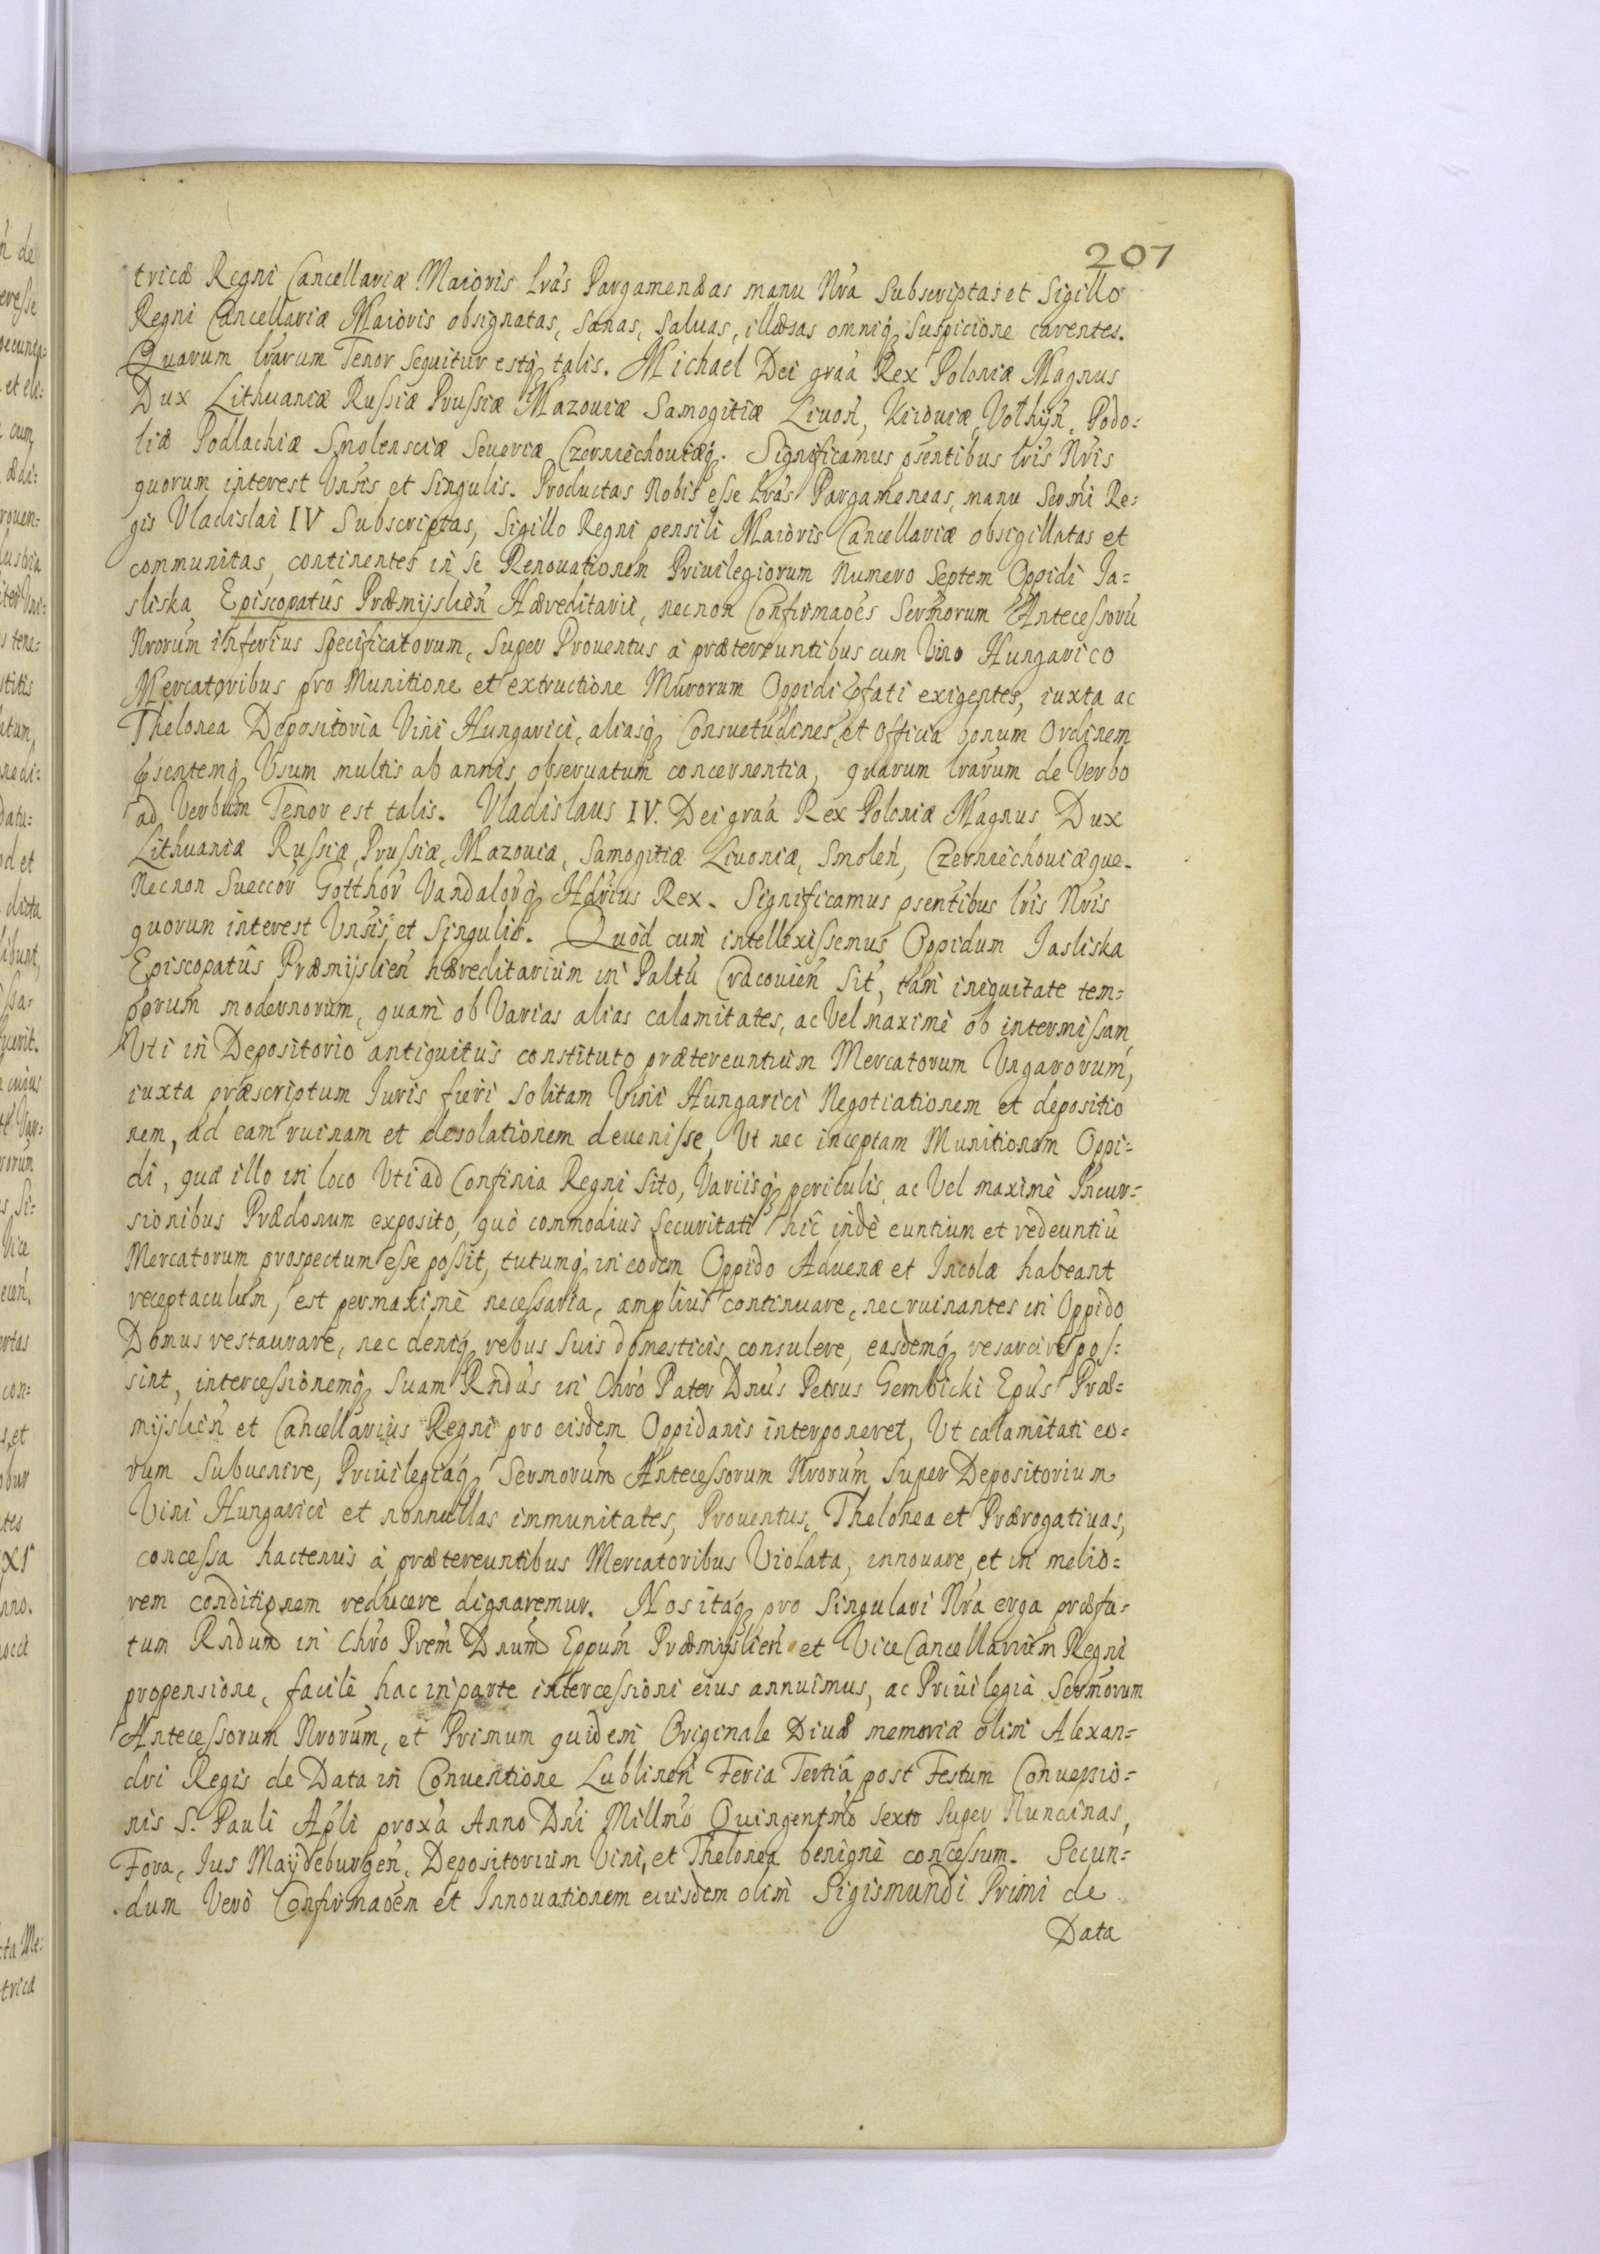 207
tricæ Regni Cancellariæ Maioris lrás Pargameneas manu Nra Subscriptas et Sigillo
Regni Cancellariæ Maioris obsignatas, sanas, saluas, illæsas omniq suspicione carentes.
Quarum lrárum Tenor sequitur estq talis. Michael Dei graâ Rex Poloniæ Magnus
Dux Lithuaniæ Russiæ Prussiæ Mazouiæ Samogitiæ Liuoñ, Kiiouiæ, Volhyñ, Podo-
liæ Podlachiæ Smolensciæ Seueriæ Czerniechouiæq. Significamus psentibus lris Nris
quorum interest Vnsis et singulis. Productas Nobis esse lrás Pargameneas, manu Sermi Re-
gis Vladislai IV Subscriptas, Sigillo Regni pensili Maioris Cancellariæ obsigillatas et
communitas, continentes in se Renouationem Priuilegiorum Numero Septem Oppidi Ja-
sliska Episcopatûs Præmysliеñ Hæreditarii, necnon Confirmaões Sermorum Antecessorũ
Nrorum inferius specificatorum, super Prouentus à prætereuntibus cum Vino Hungarico
Mercatoribus pro Munitione et extructione Murorum Oppidi pfati exigentes, iuxta ac
Thelonea Depositoria Vini Hungarici, aliasq Consuetudines, et Officia bonum Ordinem
psentemq Vsum multis ab annis obseruatum concernentia, quarum lrarum de Verbo
ad Verbum Tenor est talis. Vladislaus IV. Dei graá Rex Poloniæ Magnus Dux
Lithuaniæ Russiæ, Prussiæ, Mazouiæ, Samogitiæ Liuoniæ, Smoleñ, Czerniechouiæque.
Necnon Sueccoŕ Gotthoŕ Vandaloŕq Hdrius Rex. Significamus psentibus lris Nris
quorum interest Vnsis, et Singulis. Quòd cum intellexissemus Oppidum Jasliska
Episcopatûs Præmysliеñ hæreditarium in Paltû Cracouieñ Sit, tam iniquitate tem-
porum modernorum, quam ob Varias alias calamitates, ac Vel maximè ob intermissam
Vti in Depositorio antiquitus constituto prætereuntium Mercatorum Vngarorum,
iuxta præscriptum Juris fieri solitam Vini Hungarici Negotiationem et depositio
nem, ad eam ruinam et desolationem deuenisse, Ut nec inceptam Munitionem Oppi-
di, quæ illo in loco Vti ad Confinia Regni sito, Variisq periculis, ac Vel maximè Incur-
sionibus Prædonum exposito, quò commodius Securitati hic indè euntium et redeuntiũ
Mercatorum prospectum esse possit, tutumq in eodem Oppido Aduenæ et Incolæ habeant
receptaculum, est permaximè necessaria, amplius continuare, nec ruinantes in Oppido
Domus restaurare, nec deniq rebus suis domesticis consulere, easdemq resarcire pos-
sint, intercessionemq suam Rndus in Chro Pater Dnus Petrus Gembicki Epus Præ-
mysliеñ et Cancellarius Regni pro eisdem Oppidanis interponeret, Ut calamitati eo-
rum subuenire, Priuilegiaq Sermorum Antecessorum Nrorum super Depositorium
Vini Hungarici et nonnullas immunitates, Prouentus, Thelonea et Prærogatiuas,
concessa hactenus à prætereuntibus Mercatoribus Violata, innouare, et in melio-
rem conditionem reducere dignaremur. Nos itaq pro singulari Nra erga præfa-
tum Rndum in Chro Prem Dnum Eppum Præmysliеñ et ViceCancellarium Regni
propensione, facilè hac in parte intercessioni eius annuimus, ac Priuilegia Sermorum
Antecessorum Nrorum, et Primum quidem Originale Diuæ memoriæ olim Alexan-
dri Regis de Data in Conuentione Lublineñ Feria Tertia post Festum Conuersio-
nis S. Pauli Apli proxa Anno Dni Millmo Quingentmo sexto Super Nundinas,
Fora, Jus Maydeburgeñ, Depositorium Vini, et Thelonea benignè concessum. Secun-
dum Verò Confirmaõem et Innouationem eiusdem olim Sigismundi Primi de
Data